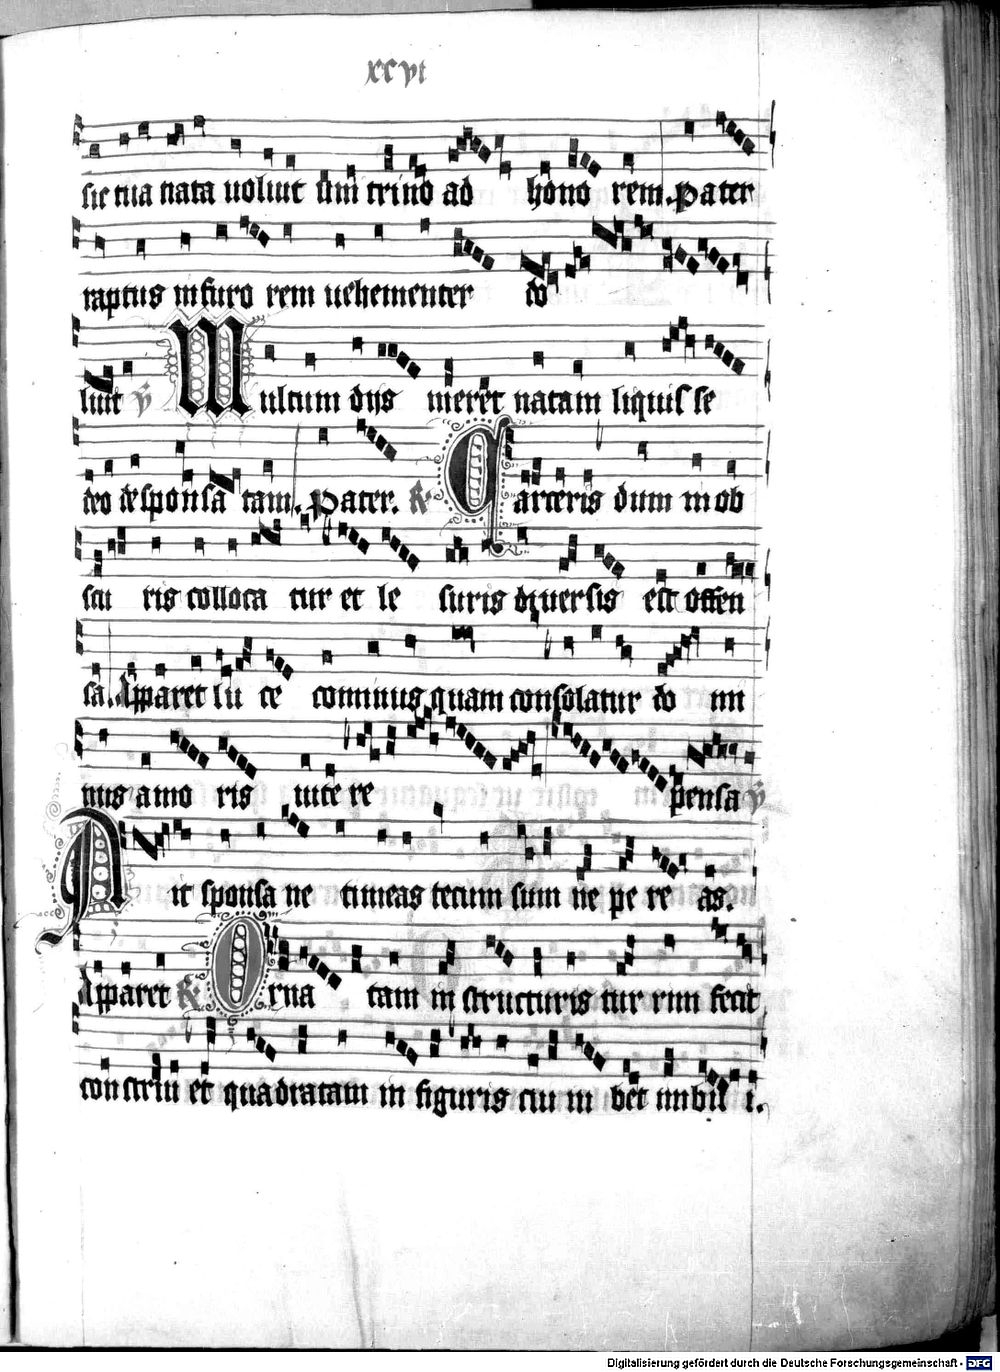 xcvi
sic tua nata voluit sūm trino ad hono rem. Pater
raptus in furo rem vehementer do
luit v̄ Multum dijs meret natam liquis se
deo desponsa tam. Pater. R Carceris dum in ob
scu ris colloca tur et le suris diversis est offen
sa. Apparet lu ce cominus quam consolatur do mi
nus amo ris iure re pensa v̄
Air sponsa ne timeas tecum sum ne pe re as.
Apparet R Orna tam in structuris tur rim fecit
con strui et quadratam in figuris cui iu bet imbui i.
Digitalisierung gefördert durch die Deutsche Forschungsgemeinschaft - DFG